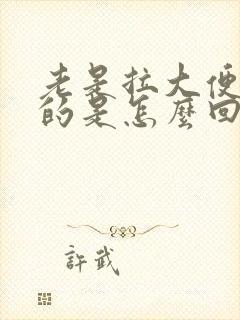 老是拉大便
的是怎麼回
許武